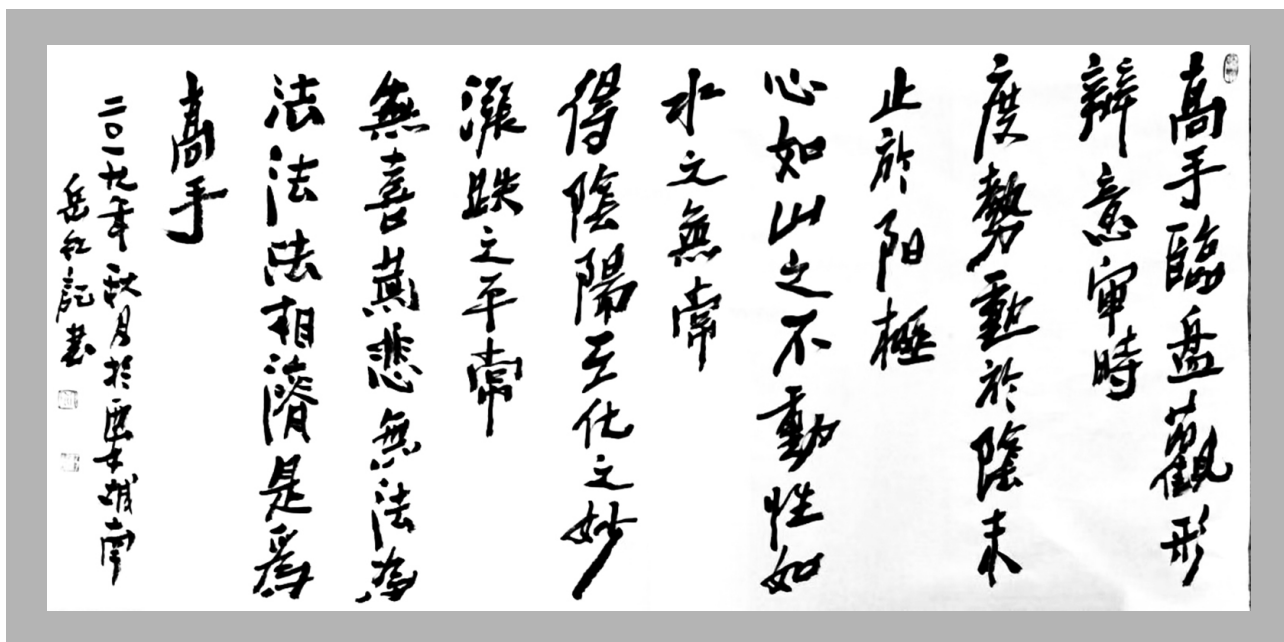 高手臨盘觀形
辯意审時
度勢動於陰末
止於阳極
心如山之不動性如
水之無常
得陰陽互化之妙
漲跌之平常
無喜無悲無法為
法法法相濟是為
高手
二〇一九年秋月於西安城南
岳紅記書